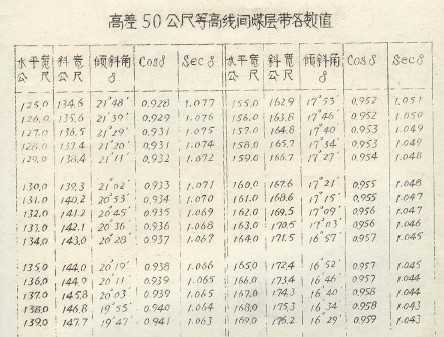 高差50公尺等高线间煤层带各数值
水平宽公尺 斜宽公尺 倾斜角δ Cosδ Secδ 水平宽公尺 斜宽公尺 倾斜角δ Cosδ Secδ
125.0 134.6 21°48′ 0.928 1.077 155.0 162.9 17°53′ 0.952 1.051
126.0 135.6 21°39′ 0.929 1.076 156.0 163.8 17°46′ 0.952 1.050
127.0 136.5 21°29′ 0.931 1.075 157.0 164.8 17°40′ 0.953 1.049
128.0 137.4 21°20′ 0.931 1.074 158.0 165.7 17°34′ 0.953 1.049
129.0 138.4 21°11′ 0.932 1.072 159.0 166.7 17°27′ 0.954 1.048
130.0 139.3 21°02′ 0.933 1.071 160.0 167.6 17°21′ 0.955 1.048
131.0 140.2 20°53′ 0.934 1.070 161.0 168.6 17°15′ 0.955 1.047
132.0 141.2 20°45′ 0.935 1.069 162.0 169.5 17°09′ 0.956 1.047
133.0 142.1 20°36′ 0.936 1.068 163.0 170.5 17°03′ 0.956 1.046
134.0 143.0 20°28′ 0.937 1.067 164.0 171.5 16°57′ 0.957 1.045
135.0 144.0 20°19′ 0.938 1.066 165.0 172.4 16°52′ 0.957 1.045
136.0 144.9 20°11′ 0.939 1.065 166.0 173.4 16°46′ 0.957 1.044
137.0 145.8 20°03′ 0.939 1.065 167.0 174.3 16°40′ 0.958 1.044
138.0 146.8 19°55′ 0.940 1.064 168.0 175.3 16°34′ 0.958 1.043
139.0 147.7 19°47′ 0.941 1.063 169.0 176.2 16°29′ 0.959 1.043